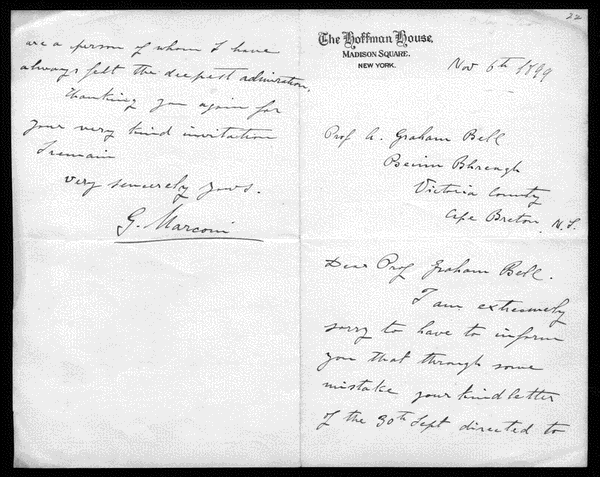 22
The Hoffman House,
MADISON SQUARE.
NEW YORK.
Nov 6th 1899
Prof A. Graham Bell
Beinn Bhreagh
Victoria County
Cape Breton. N.S.
Dear Prof Graham Bell.
I am extremely
sorry to have to inform
you that through some
mistake your kind letter
of the 30th Sept directed to
are a person of whom I have
always felt the deepest admiration.
Thanking you again for
your very kind invitation
I remain
very sincerely yours.
G. Marconi